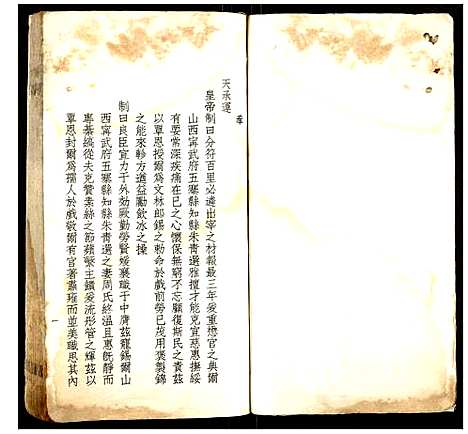 奉
天承運
皇帝制曰分符百里必遴出宰之材報最三年爰重懋官之典爾
山西寧武府五寨縣知縣朱青選雅擅才能克宣慈惠撫綏
有要常深疾痛在已之心懷保無窮不忘顧復斯民之責茲
以覃恩授爾為文林郎錫之勅命於戲前勞已茂用褒製錦
之能來軫方遒益勵飲冰之操
制曰良臣宜力于外効厥勤勞賢媛襄職于中膺茲寵錫爾山
西寧武府五寨縣知縣朱青選之妻周氏終溫且惠既靜而
專綦縞從夫克贊素絲之節蘋蘩主饋爰流彤管之輝茲以
覃恩封爾為孺人於戲敬爾有官著肅雝而並美職思其內
一